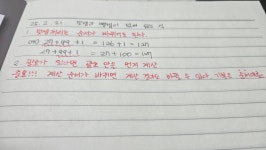 1. 덧셈끼리는 순서가 바뀌어도 된다
27+99+1 = 126+1 = 127
27+99+1 = 27+100 = 127
2. 괄호가 있다면 괄호 안을 먼저 계산
중요!!! 계산 순서가 바뀌면 계산 결과도 바뀔 수 있다.